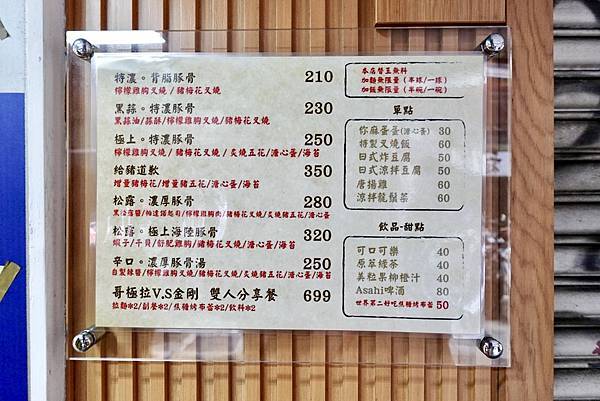 特濃。背脂豚骨 210
檸檬雞胸叉燒/豬梅花叉燒
黑蒜。特濃豚骨 230
黑蒜油/蒜酥/檸檬雞胸叉燒/豬梅花叉燒
極上。特濃豚骨 250
檸檬雞胸叉燒/豬梅花叉燒/炙燒五花/溏心蛋/海苔
給豬道歉 350
增量豬梅花/增量豬五花/溏心蛋/海苔
松露。濃厚豚骨 280
黑松露醬/帕達諾起司/檸檬雞胸肉/豬梅花叉燒/炙燒豬五花/溏心蛋
松露。極上海陸豚骨 320
蝦子/干貝/舒肥雞胸/豬梅花叉燒/溏心蛋/海苔
辛口。濃厚豚骨湯 250
自製辣醬/檸檬雞胸叉燒/豬梅花叉燒/炙燒豬五花/溏心蛋/海苔
哥極拉V.S金剛 雙人分享餐 699
拉麵*2/副餐*2/焦糖烤布蕾*2/飲料*2
本店替玉無料
加麵無限量(半球/一球)
加飯無限量(半碗/一碗)
單點
你麻蛋蛋(溏心蛋) 30
特製叉燒飯 60
日式炸豆腐 50
日式涼拌豆腐 50
唐揚雞 60
涼拌龍鬚菜 60
飲品-甜點
可口可樂 40
原萃綠茶 40
美粒果柳橙汁 40
Asahi啤酒 80
世界第二好吃焦糖烤布蕾 50